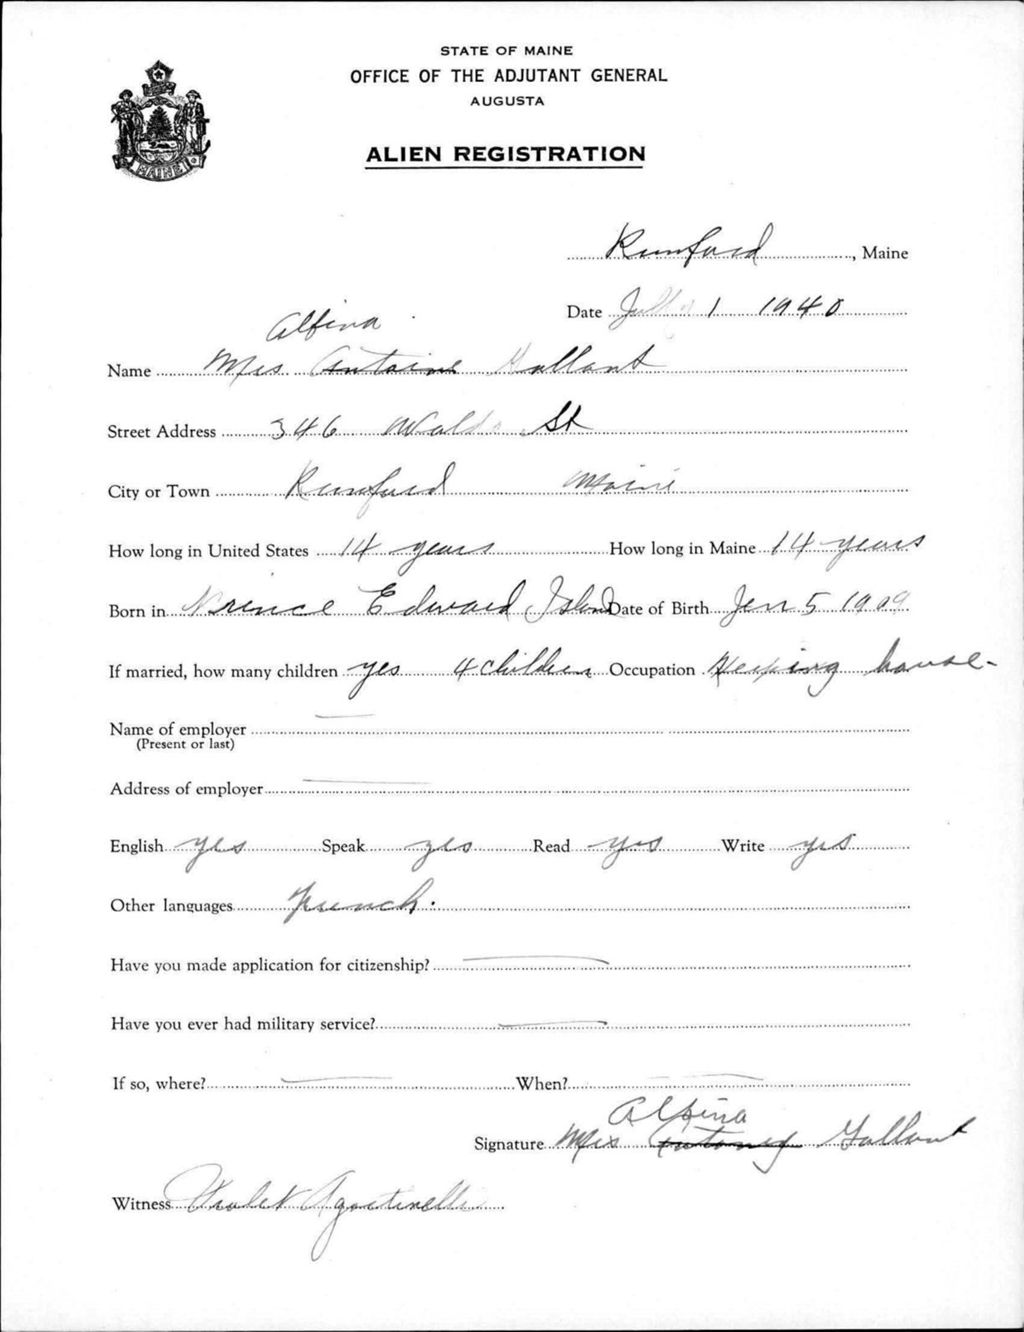 STATE OF MAINE
OFFICE OF THE ADJUTANT GENERAL
AUGUSTA
MAINE
ALIEN REGISTRATION
Rumford, Maine
Date July 1 1940
Alfina
Name Mrs. Antoine Gallant
Street Address 346 Waldo St
City or Town Rumford Maine
How long in United States 14 years How long in Maine 14 years
Born in Prince Edward Island Date of Birth Jan 5 1909
If married, how many children yes 4 children Occupation Keeping house
Name of employer
(Present or last)
Address of employer
English yes Speak yes Read yes Write yes
Other languages French.
Have you made application for citizenship?
Have you ever had military service?
If so, where? When?
Alfina
Signature Mrs Antoney Gallant
Witness Violet Agostinelli